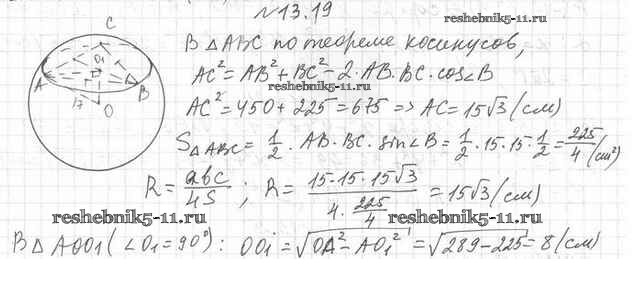 №13.19
reshebnik5-11.ru
C
O1
A
B
17
O
В △ABC по теореме косинусов,
AC² = AB² + BC² - 2·AB·BC·cos∠B
reshebnik5-11.ru
AC² = 450 + 225 = 675 => AC = 15√3 (см)
S△ABC = 1/2 · AB·BC·sin∠B = 1/2 · 15·15·1/2 = 225/4 (см²)
R = abc/4S ; R = 15·15·15√3 / 4·225/4 = 15√3 (см)
reshebnik5-11.ru
reshebnik5-11.ru
В △ AOO1 (∠O1 = 90°): OO1 = √OA² - AO1² = √289-225 = 8 (см)